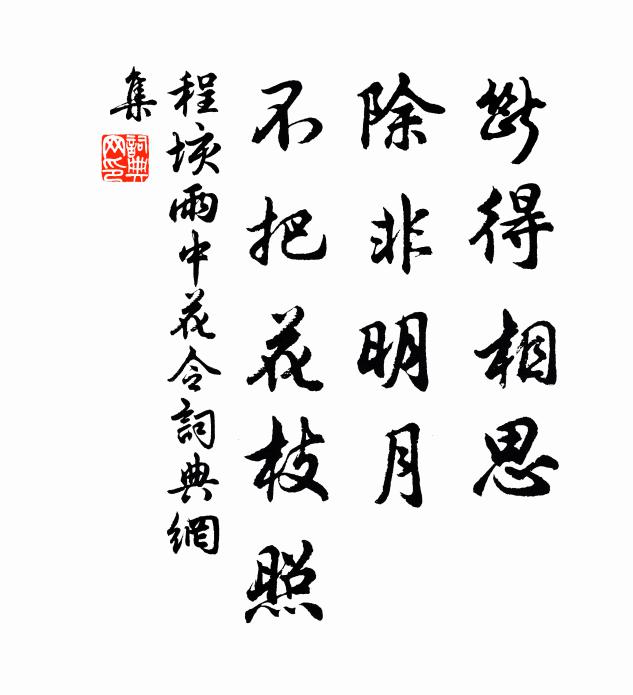 斷得相思
除非明月
不把花枝照
程垓雨中花令詞典網
集
詞典
网印